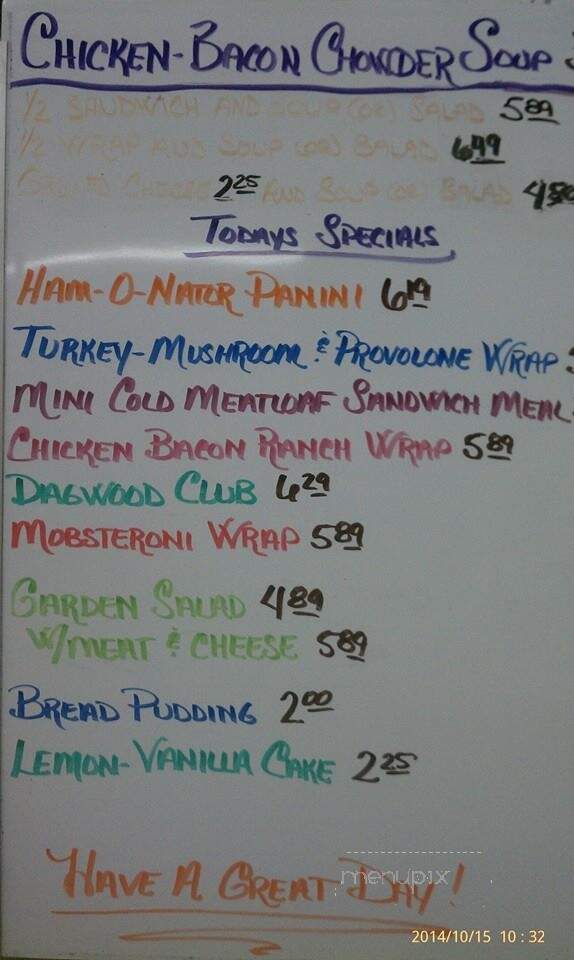 CHICKEN-BACON CHOWDER SOUP
1/2 SANDWICH AND SOUP (OR) SALAD 5 89
1/2 WRAP AND SOUP (OR) SALAD 6 49
GRILLED CHEESE 2 25 AND SOUP (OR) SALAD 4
TODAYS SPECIALS
HAM-O-NATOR PANINI 6 19
TURKEY-MUSHROOM & PROVOLONE WRAP
MINI COLD MEATLOAF SANDWICH MEAL
CHICKEN BACON RANCH WRAP 5 89
DAGWOOD CLUB 6 29
MOBSTERONI WRAP 5 89
GARDEN SALAD 4 89
W/MEAT & CHEESE 5 89
BREAD PUDDING 2 00
LEMON-VANILLA CAKE 2 25
HAVE A GREAT DAY!
menupix
2014/10/15 10:32